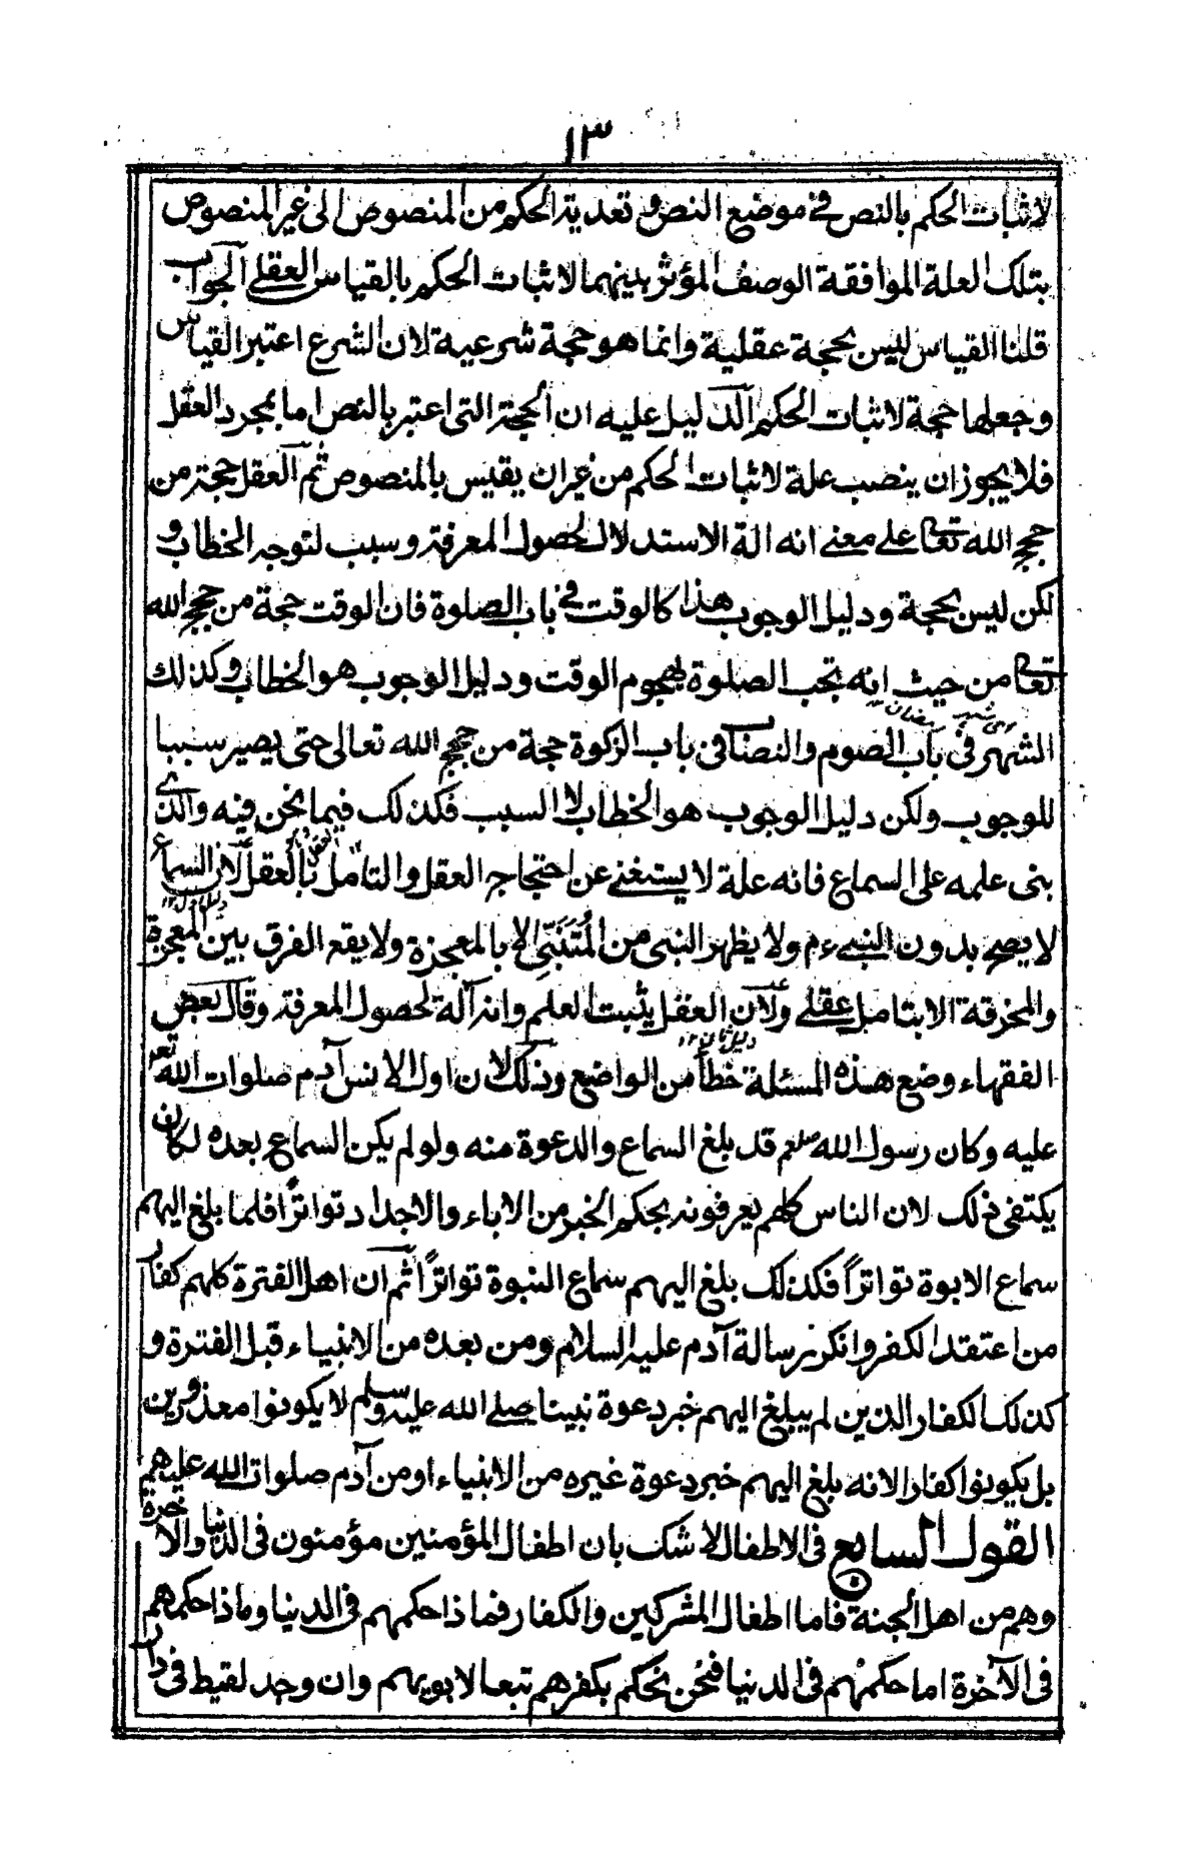 ١٣
لاثبات الحكم بالنص فى موضع النص و تعدية الحكم من المنصوص الى غير المنصوص
بتلك العلة الموافقة الوصف المؤثر بينهما لا ثبات الحكم بالقياس العقلے الجواب
قلنا القياس ليس بحجة عقلية وانما هو حجة شرعية لان الشرع اعتبر القياس
وجعلها حجة لاثبات الحكم الدليل عليه ان الحجة التى اعتبر بالنص اما بمجرد العقل
فلا يجوز ان ينصب علة لاثبات الحكم من غير ان يقيس بالمنصوص ثم العقل حجة من
حجج الله تعا على معنے انه الة الاستدلال لحصول المعرفة وسبب لتوجه الخطاب و
لكن ليس بحجة ودليل الوجوب هذا كالوقت فى باب الصلوة فان الوقت حجة من حجج الله
تعا من حيث انه تجب الصلوة بهجوم الوقت ودليل الوجوب هو الخطاب وكذلك
الشهر فى باب الصوم والنصاب فى باب الزكوة حجة من حجج الله تعالى حتى يصير سببا
للوجوب ولكن دليل الوجوب هو الخطاب لا السبب فكذلك فيما نحن فيه والذے
بنى علمه على السماع فانه علة لا يستغنے عن احتجاج العقل والتامل بالعقل لان السماع
لا يصح بدون النبے ءم ولا يظهر النبى من المُتَنَبّى الا بالمعجزة ولا يقع الفرق بين المعجزة
والمخرقة الا بتامل عقلے ولان العقل يثبت العلم وانه آلة لحصول المعرفة وقال بعض
الفقهاء وضع هذه المسئلة خطأ من الواضع وذلك لان اول الانس آدم صلوات الله تعـ
عليه وكان رسول الله صلعم قد بلغ السماع والدعوة منه ولو لم يكن السماع بعده لكان
يكتفى ذلك لان الناس كلهم يعرفونه بحكم الخبر من الاباء والاجداد تواترًا فلما بلغ اليهم
سماع الابوة تواتراً فكذلك بلغ اليهم سماع النبوة تواتراً ثم ان اهل الفترة كلهم كفار
من اعتقد الكفر وانكر رسالة آدم عليه السلام ومن بعده من الانبياء قبل الفترة و
كذلك الكفار الذين لم يبلغ اليهم خبر دعوة نبينا صلے الله عليه وسلم لا يكونوا معذورين
بل يكونوا كفار الانه بلغ اليهم خبر دعوة غيره من الانبياء او من آدم صلوات الله عليهم
القول السابع فى الاطفال لا شك بان اطفال المؤمنين مؤمنون فى الدنيا والاخرة
وهم من اهل الجنة فاما اطفال المشركين والكفار فما ذا حكمهم فى الدنيا وما ذا حكمهم
فى الآخرة اما حكمهم فى الدنيا فنحن نحكم بكفرهم تبعا لابويهم وان وجد لقيط فى دار